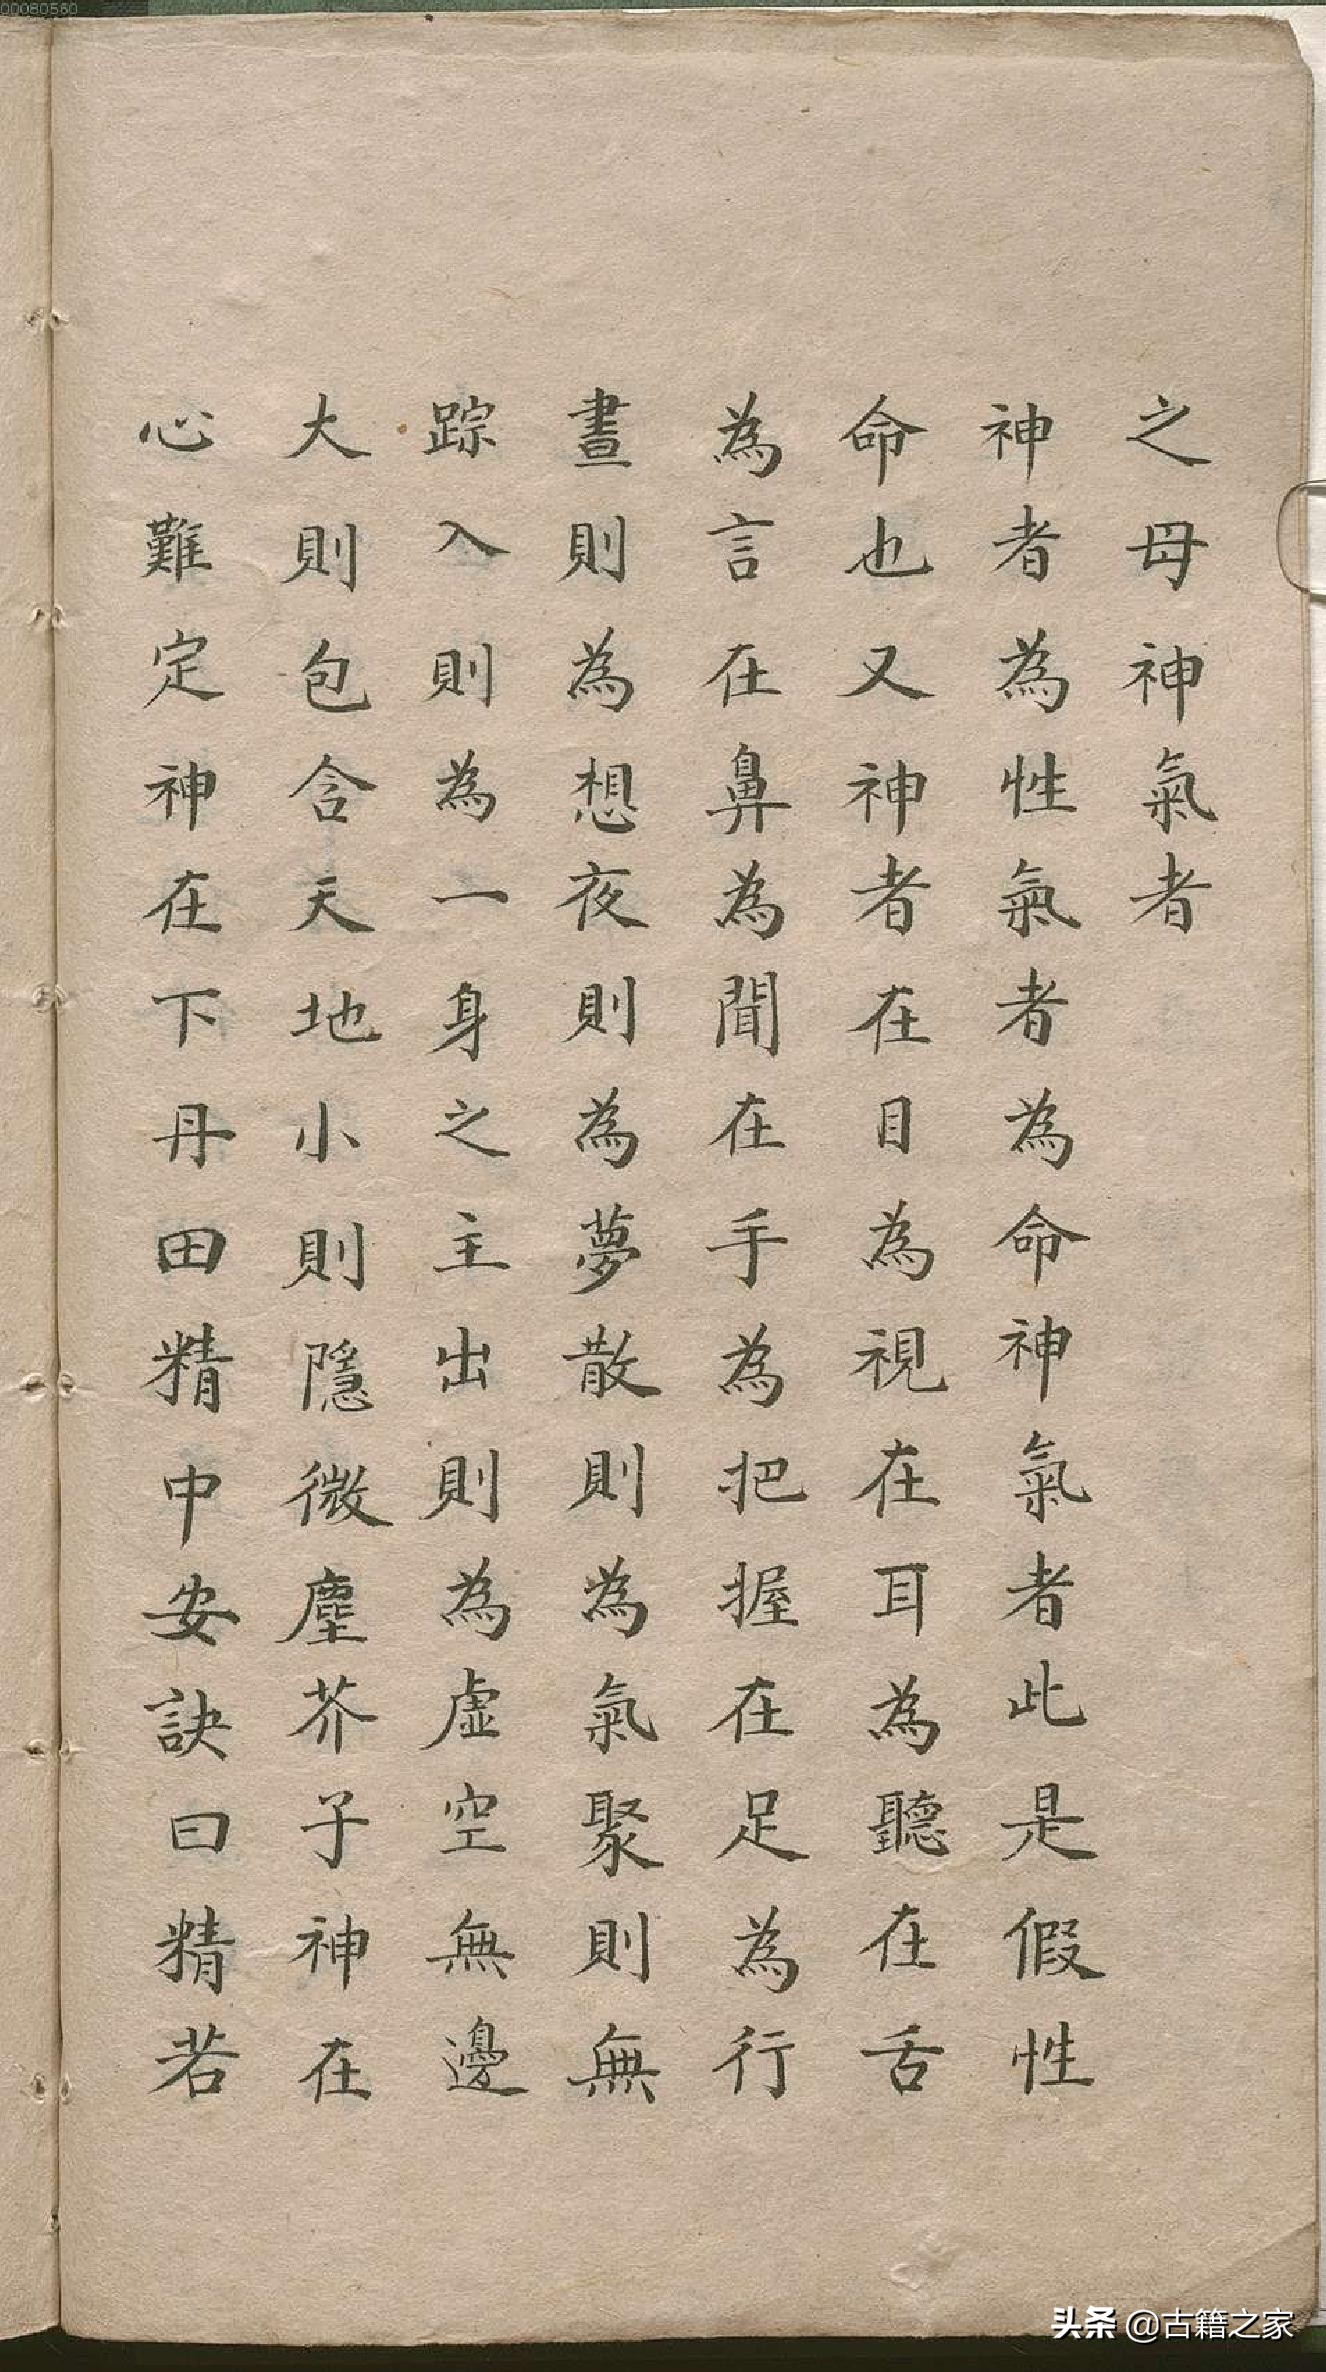 之母神氣者
神者為性氣者為命神神氣者此是假性
命也又神者在目為視在耳為聽在舌
為言在鼻為聞在手為把握在足為行
晝則為想夜則為夢散則為氣聚則無
踪入則為一身之主出則為虛空無邊
大則包含天地小則隱微塵芥子神在
心難定神在下丹田精中安訣曰精若
頭条 @古籍之家
00080560